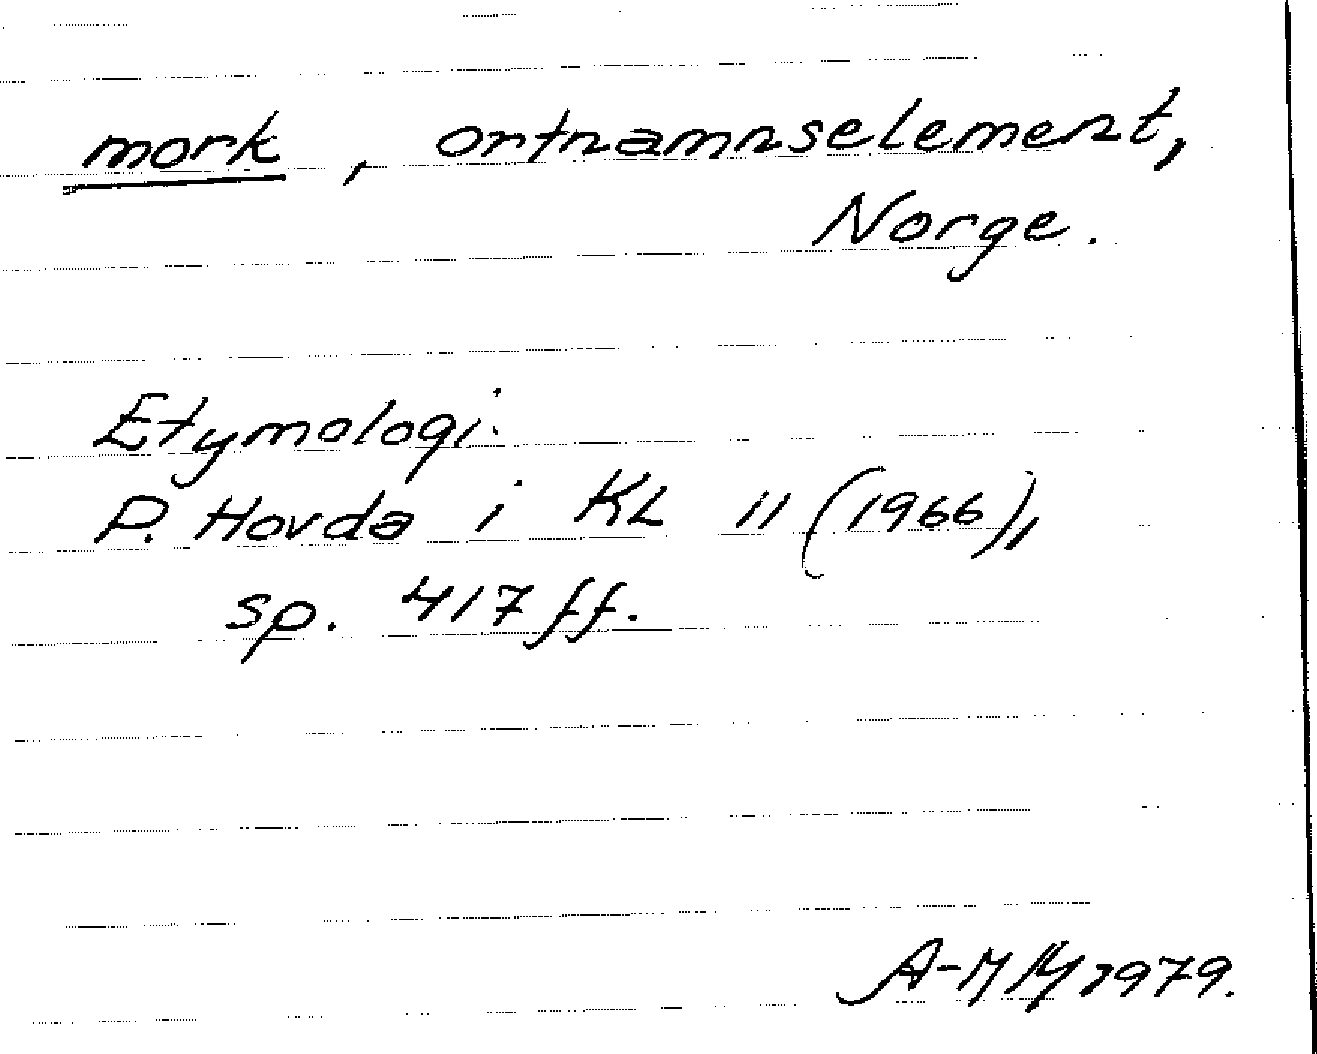 mork, ortnamnselement,
Norge.
Etymologi:
P. Hovda i KL 11 (1966),
sp. 417 ff.
1979.